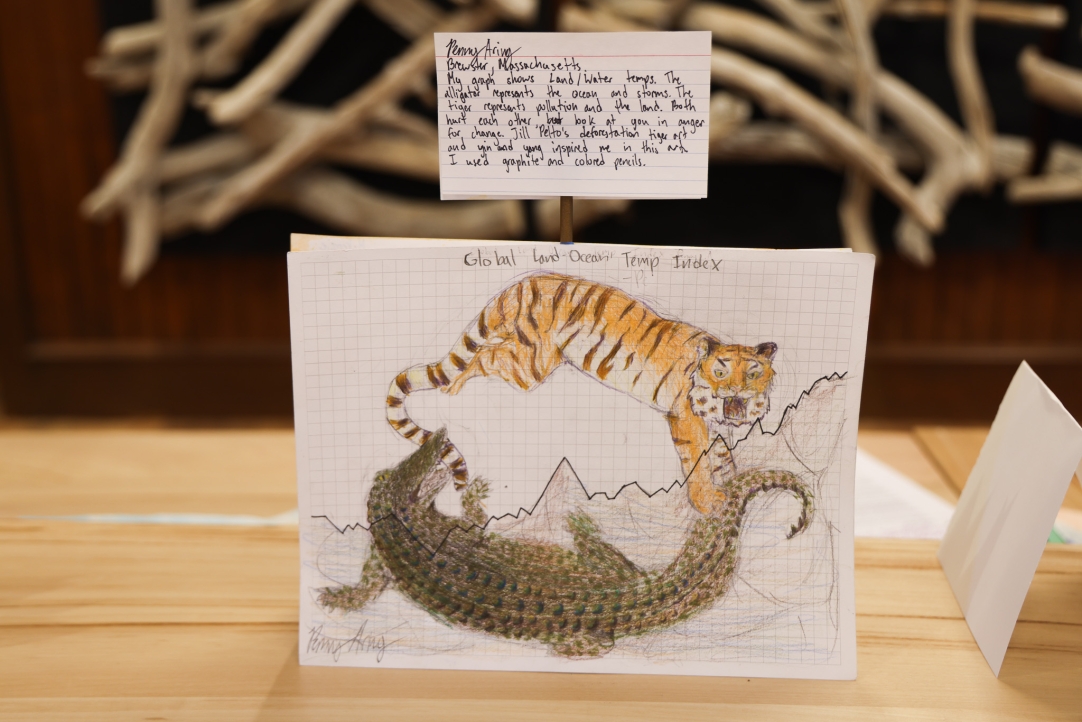 Penny Aring
Brewster, Massachusetts.
My graph shows Land/Water temps. The
alligator represents the ocean and storms. The
tiger represents pollution and the land. Both
hurt each other but look at you in anger
for change. Jill Pelto's deforestation tiger art
and yin and yang inspired me in this art.
I used graphite and colored pencils.
Global "Land-Ocean" Temp Index
Penny Aring